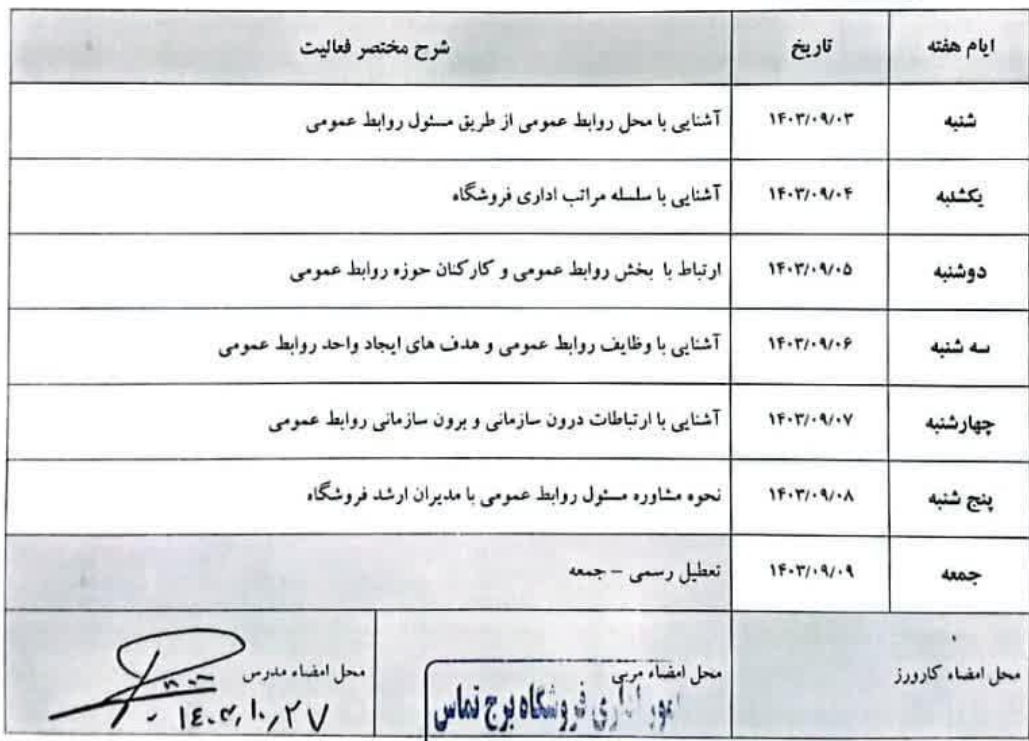 ایام هفته تاریخ شرح مختصر فعالیت
شنبه ۱۴۰۳/۰۹/۰۳ آشنایی با محل روابط عمومی از طریق مسئول روابط عمومی
یکشنبه ۱۴۰۳/۰۹/۰۴ آشنایی با سلسله مراتب اداری فروشگاه
دوشنبه ۱۴۰۳/۰۹/۰۵ ارتباط با بخش روابط عمومی و کارکنان حوزه روابط عمومی
سه شنبه ۱۴۰۳/۰۹/۰۶ آشنایی با وظایف روابط عمومی و هدف های ایجاد واحد روابط عمومی
چهارشنبه ۱۴۰۳/۰۹/۰۷ آشنایی با ارتباطات درون سازمانی و برون سازمانی روابط عمومی
پنج شنبه ۱۴۰۳/۰۹/۰۸ نحوه مشاوره مسئول روابط عمومی با مدیران ارشد فروشگاه
جمعه ۱۴۰۳/۰۹/۰۹ تعطیل رسمی – جمعه
محل امضاء کارورز محل امضاء مربی محل امضاء مدرس
امور اداری فروشگاه برج تماس
۱۴۰۳,۱۰,۲۷